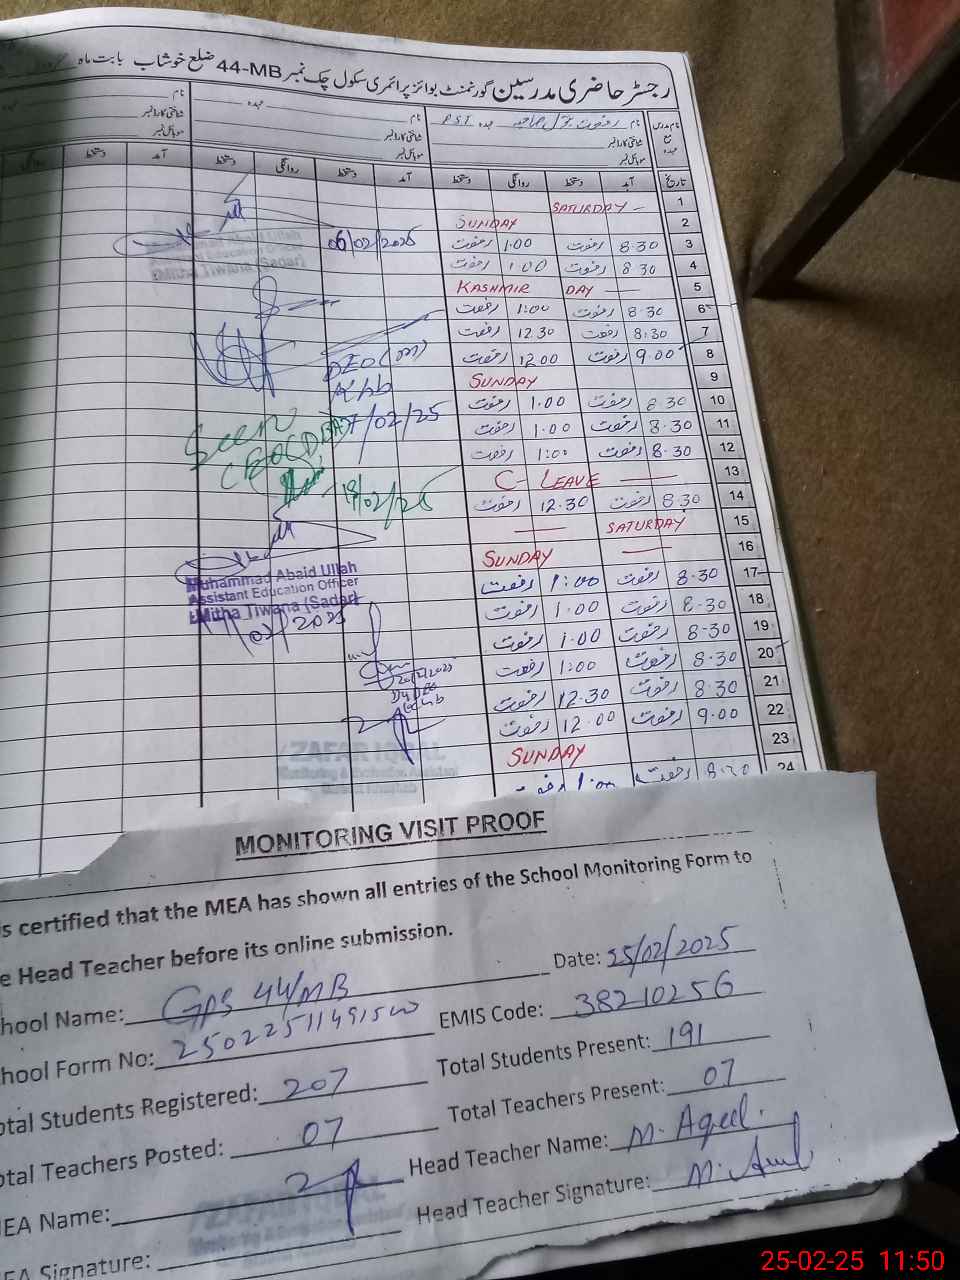 رجسٹر حاضری مدرسین گورنمنٹ بوائز پرائمری سکول چک نمبر 44-MB ضلع خوشاب بابت ماہ
نام مدرس مع عہدہ
نام رفعت بتول صاحبہ عہدہ PST
شناختی کارڈ نمبر
موبائل نمبر
نام عہدہ
شناختی کارڈ نمبر
موبائل نمبر
نام
شناختی کارڈ نمبر
موبائل نمبر
تاریخ آمد دستخط روانگی دستخط آمد دستخط روانگی دستخط آمد دستخط روانگی
1 SATURDAY
2 SUNDAY
3 8-30 رفعت 1:00 رفعت
4 8 30 رفعت 1:00 رفعت
5 KASHMIR DAY
6 8-30 رفعت 1:00 رفعت
7 8:30 رفعت 12.30 رفعت
8 9.00 رفعت 12.00 رفعت
9 SUNDAY
10 8.30 رفعت 1.00 رفعت
11 8-30 رفعت 1:00 رفعت
12 8-30 رفعت 1:00 رفعت
13 C- LEAVE
14 8-30 رفعت 12.30 رفعت
15 SATURDAY
16 SUNDAY
17 8-30 رفعت 1:00 رفعت
18 8-30 رفعت 1:00 رفعت
19 8-30 رفعت 1.00 رفعت
20 8-30 رفعت 1:00 رفعت
21 8-30 رفعت 12.30 رفعت
22 9.00 رفعت 12.00 رفعت
23 SUNDAY
24 8-30 رفعت 1:00 رفعت
06/02/2025
Abaid Ullah
Assistant Education Officer
Mitha Tiwana (Sadar)
DEO (M)
Khb
7/02/25
Seen
CEO (DEA)
18/02/25
Muhammad Abaid Ullah
Assistant Education Officer
Mitha Tiwana (Sadar)
02/2025
20/2/2025
Dy DEO
Khb
ZAFAR IQBAL
MONITORING VISIT PROOF
is certified that the MEA has shown all entries of the School Monitoring Form to
e Head Teacher before its online submission.
Date: 25/02/2025
hool Name: GPS 44/MB
EMIS Code: 38210256
hool Form No:
Total Students Present: 191
otal Students Registered: 207
Total Teachers Present: 07
otal Teachers Posted: 07
Head Teacher Name: M. Aqeel.
MEA Name:
Head Teacher Signature:
EA Signature:
ZAFAR IQBAL
25-02-25 11:50